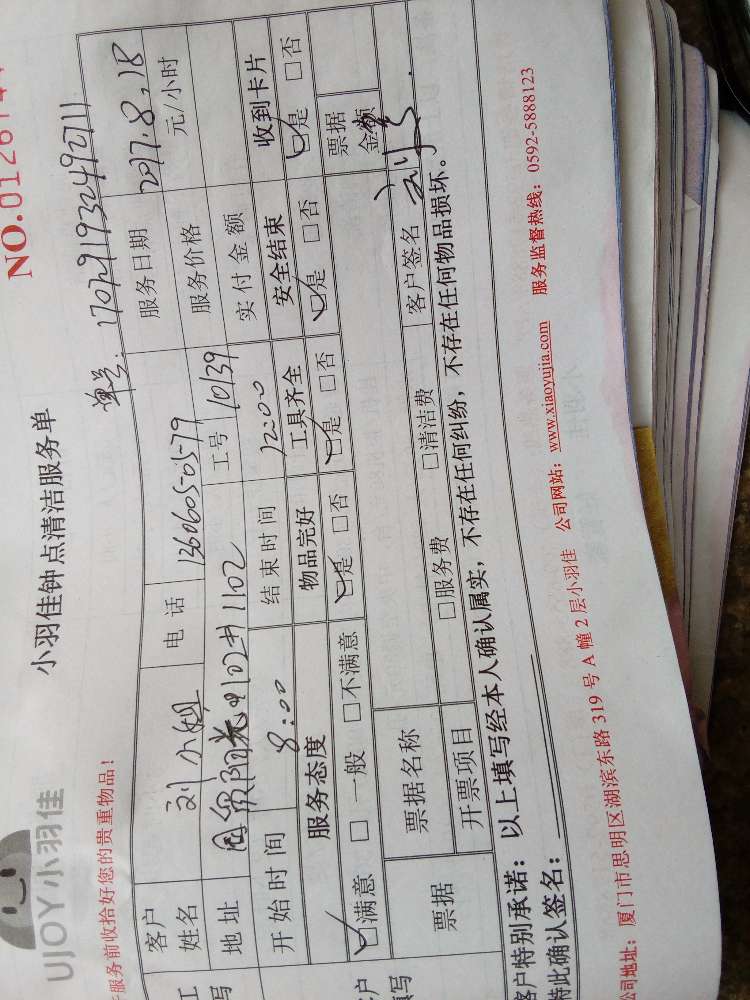 UJOY小羽佳
小羽佳钟点清洁服务单
NO.0126
服务前收拾好您的贵重物品!
单号: 1707291932492711
客户姓名 刘小姐 电话 1360605-05-79 服务日期 2017.8.18
地址 国贸阳光 1102 工号 10139 服务价格 元/小时
开始时间 8:00 结束时间 12:00 实付金额
服务态度 物品完好 工具齐全 安全结束 收到卡片
☑满意 □一般 □不满意 ☑是 □否 ☑是 □否 ☑是 □否 ☑是 □否
票据 票据名称 票据金额
开票项目 □服务费 □清洁费 客户签名
客户特别承诺: 以上填写经本人确认属实,不存在任何纠纷,不存在任何物品损坏。
特此确认签名:
公司地址: 厦门市思明区湖滨东路 319 号 A 幢 2 层小羽佳 公司网站: www.xiaoyujia.com 服务监督热线: 0592-5888123